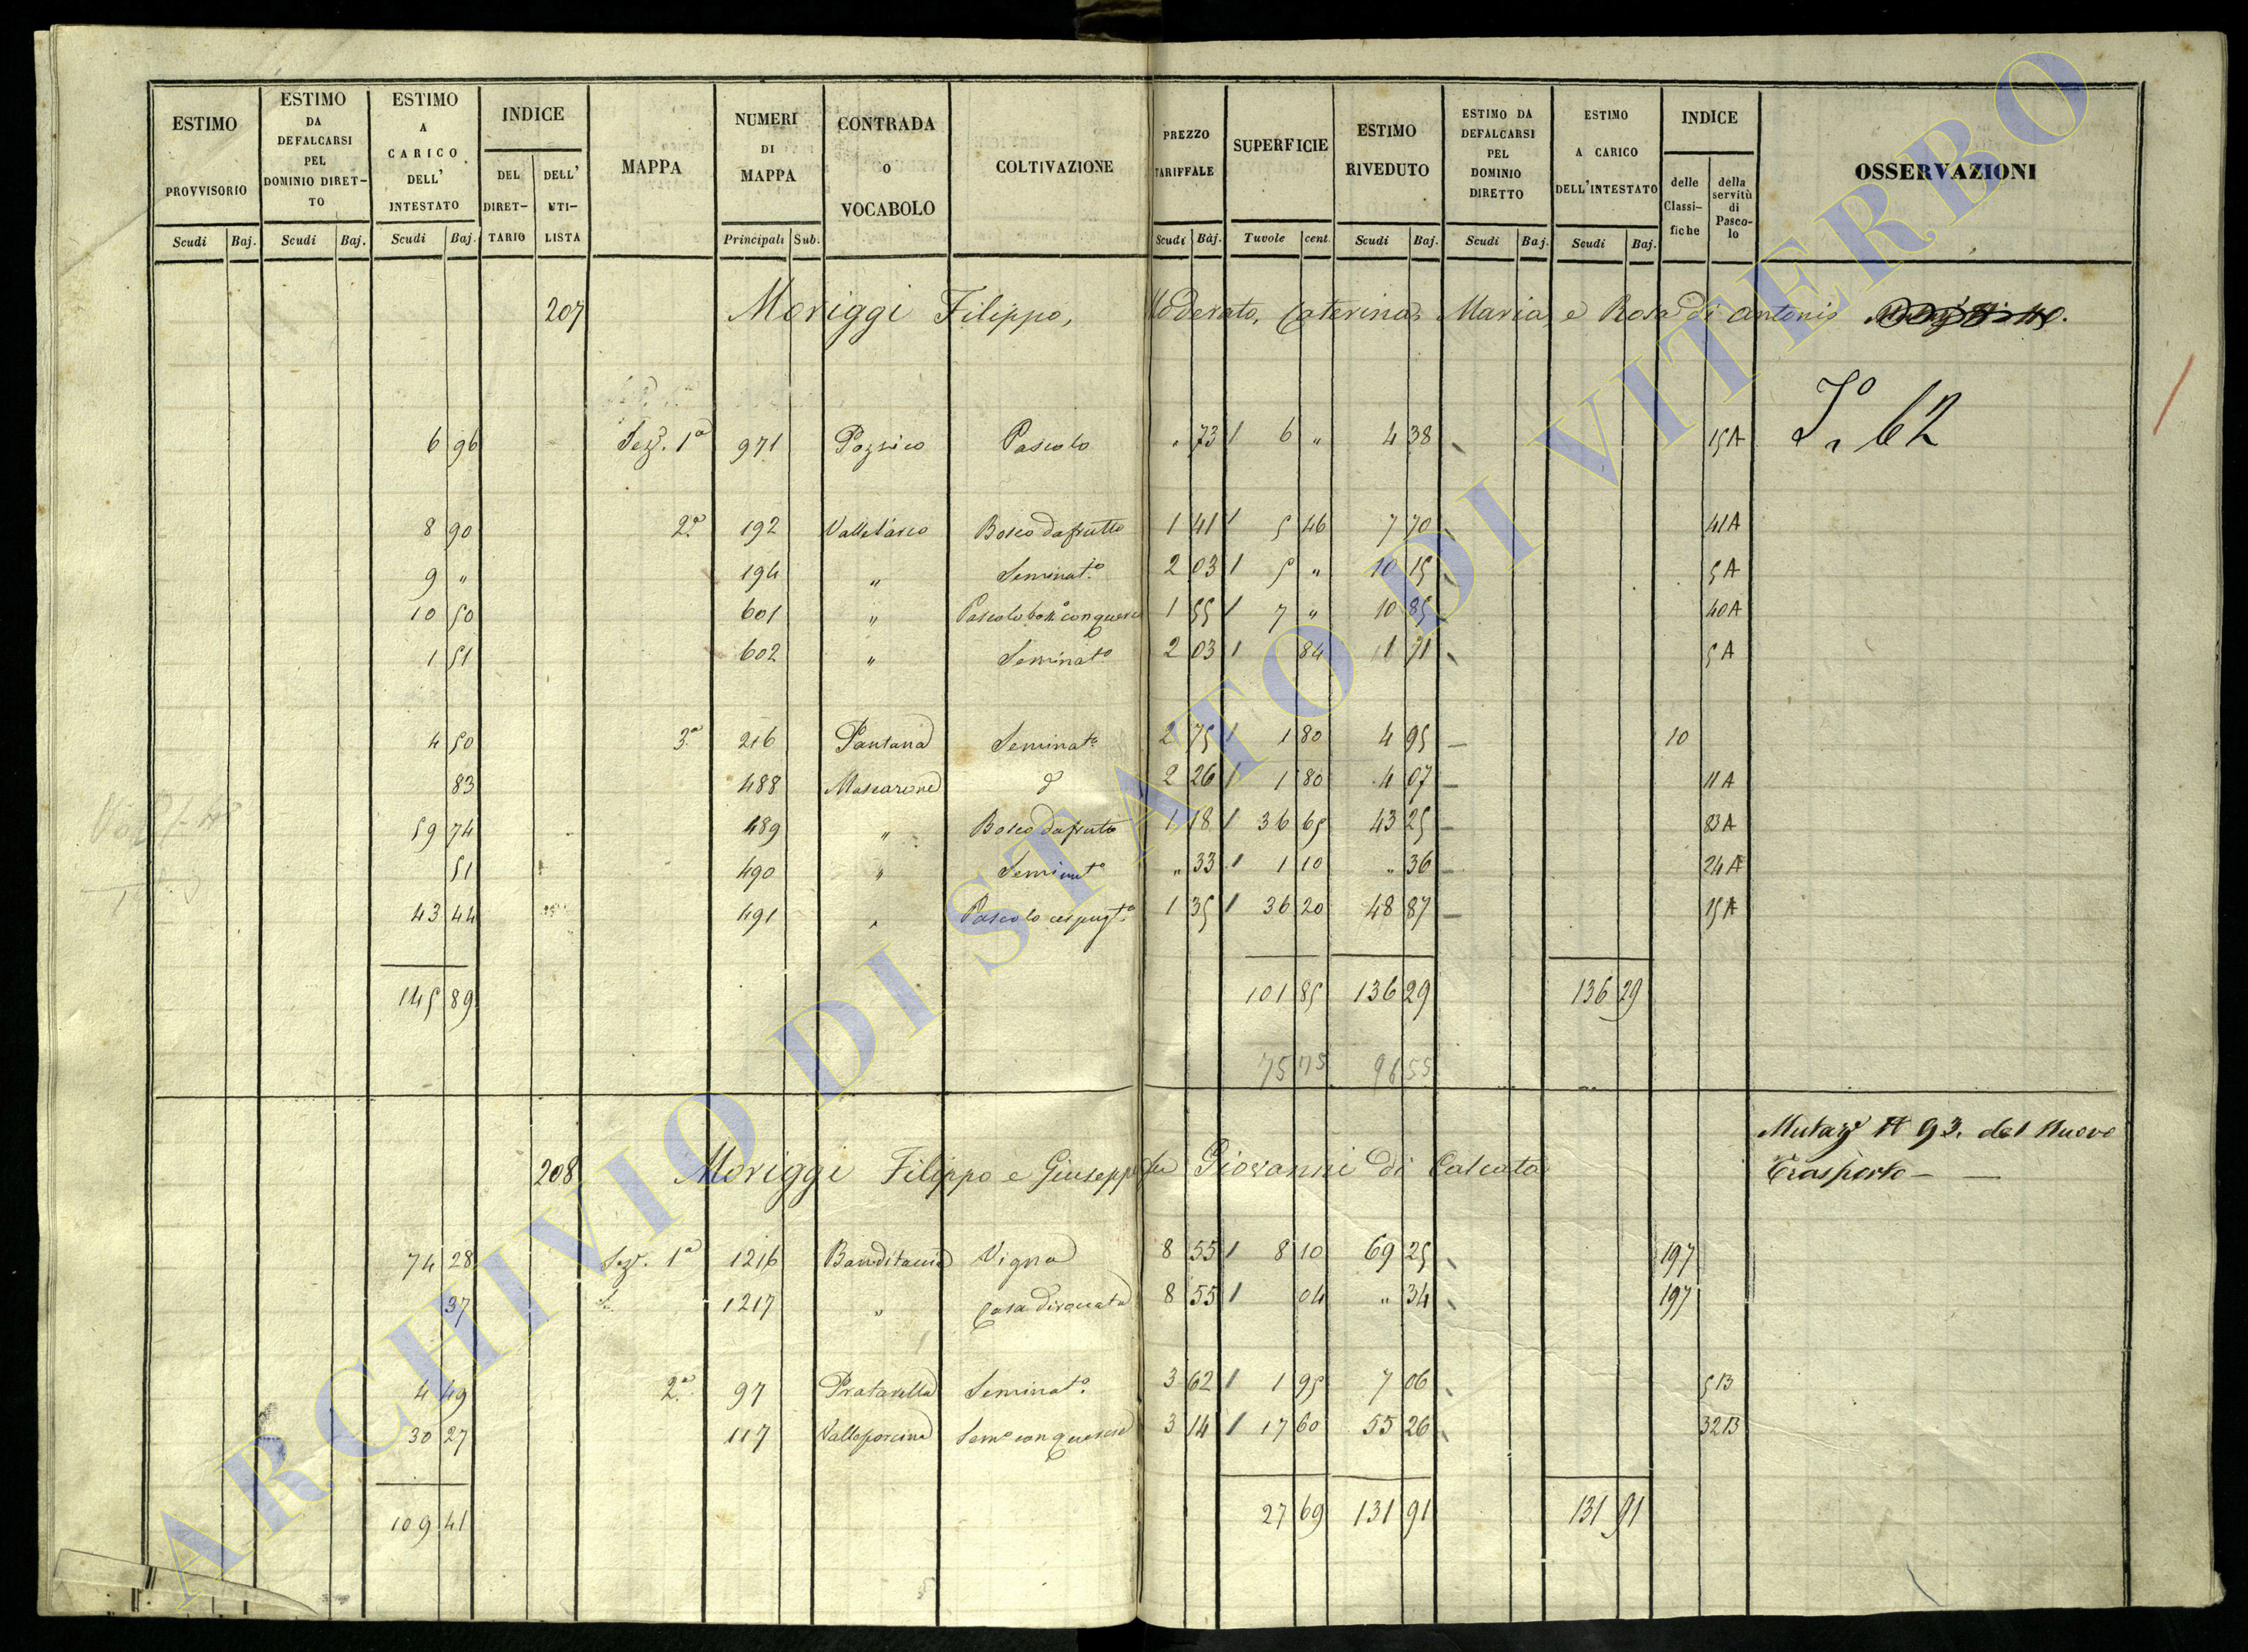 ESTIMO PROVVISORIO | ESTIMO DA DEFALCARSI PEL DOMINIO DIRET-TO | ESTIMO A CARICO DELL' INTESTATO | INDICE | MAPPA | NUMERI DI MAPPA | CONTRADA o VOCABOLO | COLTIVAZIONE | PREZZO TARIFFALE | SUPERFICIE | ESTIMO RIVEDUTO | ESTIMO DA DEFALCARSI PEL DOMINIO DIRETTO | ESTIMO A CARICO DELL'INTESTATO | INDICE | OSSERVAZIONI
DEL DIRET-TARIO | DELL' UTI-LISTA | delle Classi-fiche | della servitù di Pasco-lo
Scudi | Baj. | Scudi | Baj. | Scudi | Baj. | Principali | Sub. | Scudi | Baj. | Tavole | cent. | Scudi | Baj. | Scudi | Baj. | Scudi | Baj.
207 Moriggi Filippo, Moderato, Caterina, Maria, e Rosa di Antonio
62
6 96 Sez. 1a 971 Pascolo " 73 / 6 " 4 38 15A
8 90 2a 192 Bosco da frutto 1 41 / 5 46 7 70 41A
9 " 194 " Seminato 2 03 / 5 " 10 15 5A
10 50 601 " Pascolo 1 55 / 7 " 10 85 40A
1 51 602 " Seminato 2 03 / 84 1 71 5A
4 50 3a 216 Pantana Seminato 2 75 / 1 80 4 95 10
83 488 Mascarone d 2 26 / 1 80 4 07 11A
59 74 489 " Bosco da frutto 1 18 / 36 65 43 25 83A
51 490 " Seminato " 33 / 1 10 " 36 24A
43 44 491 " Pascolo cespugto 1 35 / 36 20 48 87 15A
145 89 101 85 136 29 136 29
75 75 96 55
Mutaze N 93. del Nuovo
208 Moriggi Filippo e Giuseppe fu Giovanni di Calcata Trasporto —
74 28 Sez. 1a 1216 Banditaccia Vigna 8 55 / 8 10 69 25 197
37 1217 " Casa diruata 8 55 / 04 " 34 197
4 49 2a 97 Pratarella Seminato 3 62 / 1 95 7 06 5B
30 27 117 Valleporcina Semo con querce 3 14 / 17 60 55 26 32B
109 41 27 69 131 91 131 91
ARCHIVIO DI STATO DI VITERBO